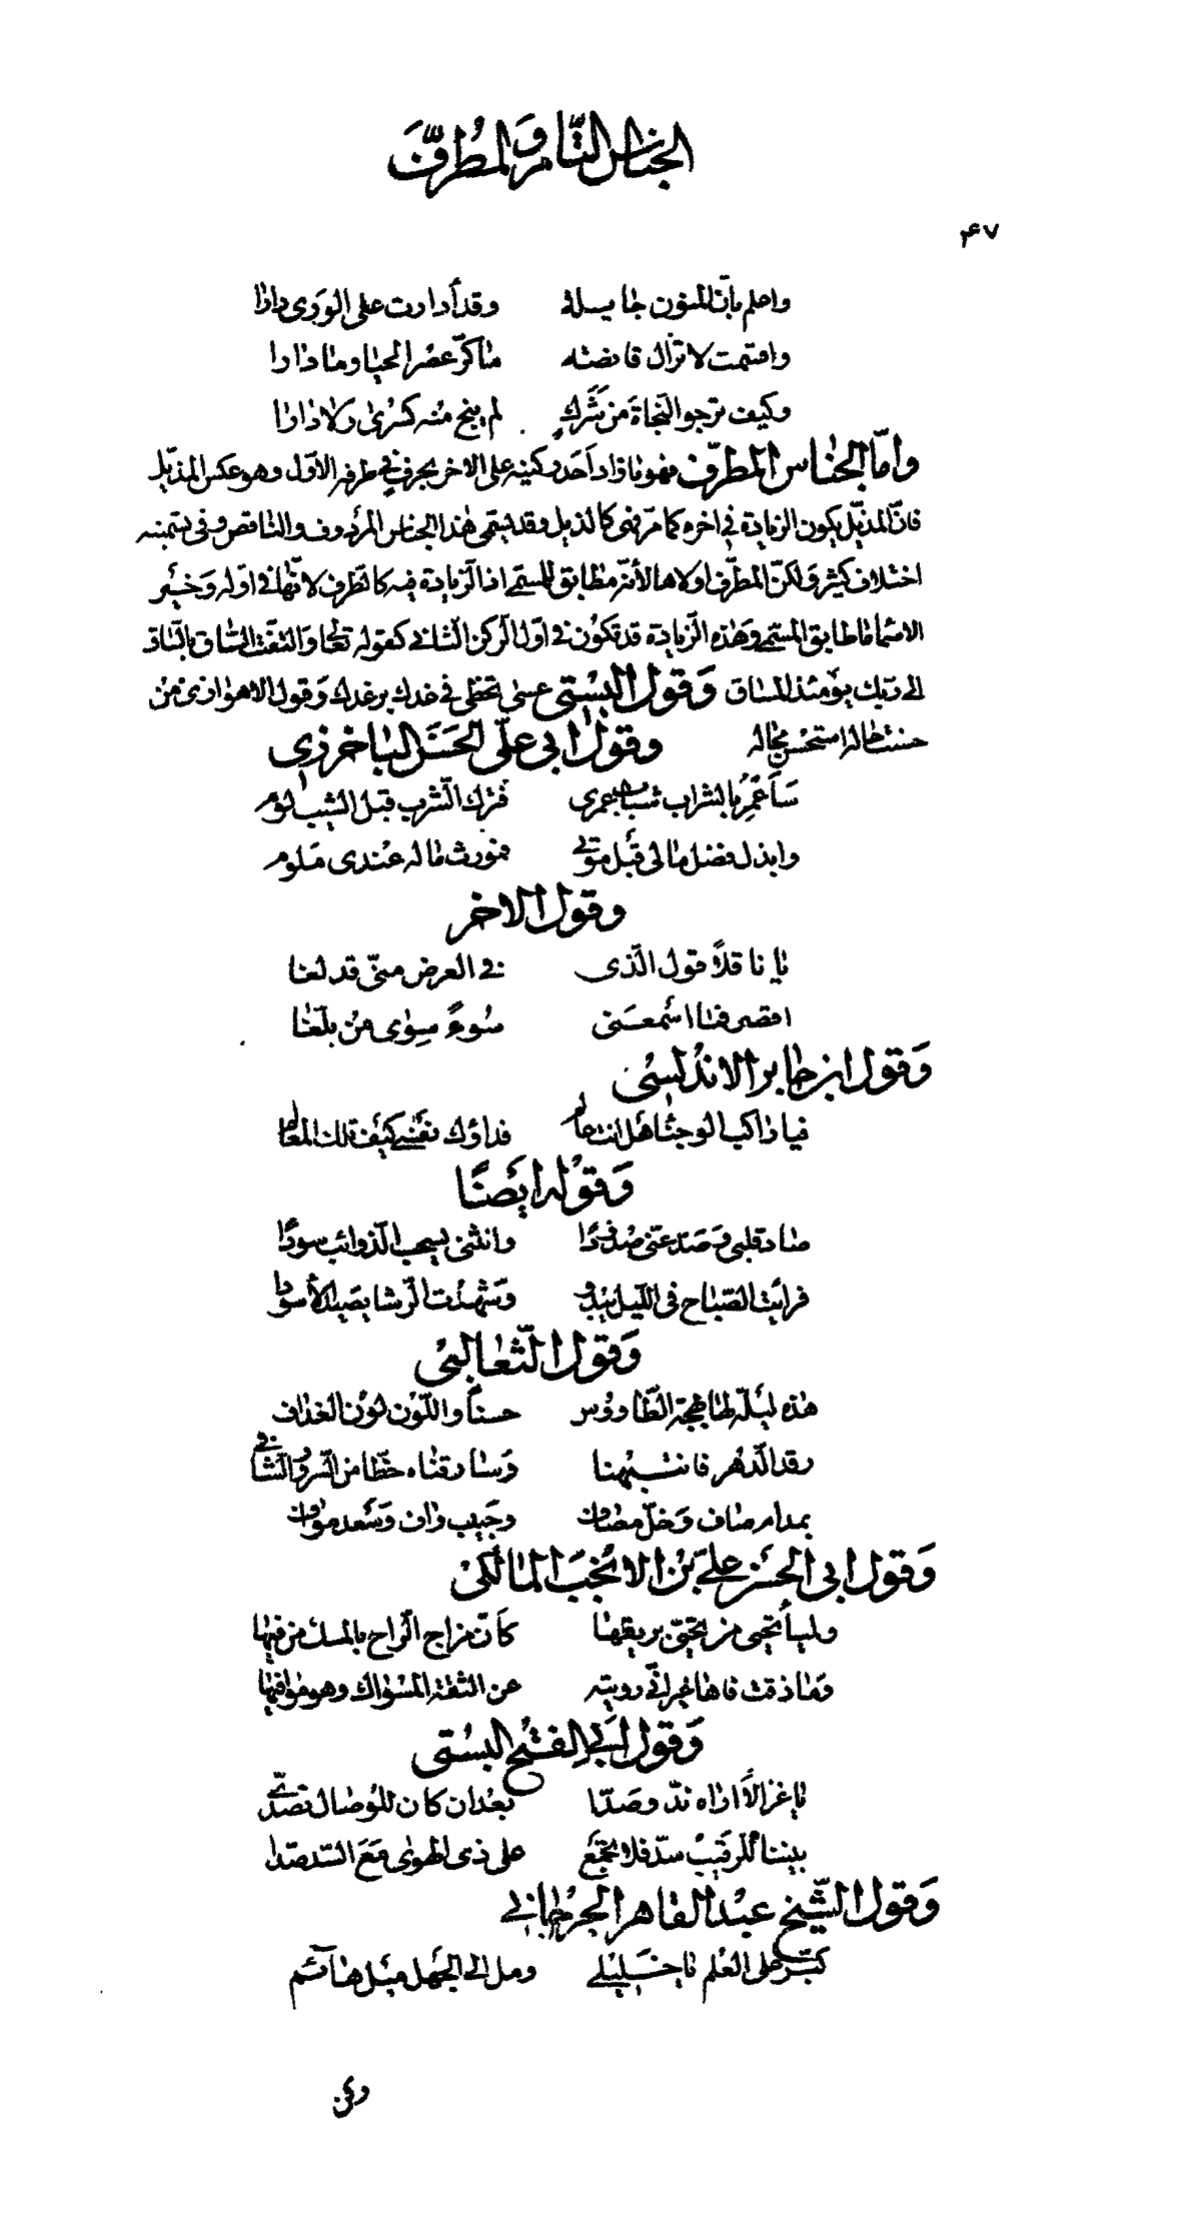 الجناس التام والمطرف
۴۷
واعلم بانّ المنون جايسلة وقد أدارت على الورى دارا
واقسمت لا تزال قانصة ما كرّ عصر المحيا وما دارا
وكيف ترجو النجاة من شرك لم ينج منه كسرى ولا دارا
وامّا الجناس المطرّف فهو ما زاد أحد ركنيه على الاخر بحرف في طرفه الاوّل وهو عكس المذيّل
فانّ المذيّل يكون الزيادة في اخره كما مرّ فهى كالذيل وقد يسمى هذا الجناس المردوف والناقص وفى تسميته
اختلاف كثير ولكنّ المطرّف اولاها لأنّه مطابق للمسمى اذ الزيادة فيه كالطرف لانّها في اوّله وخير
الاسماء ما طابق المسمى وهذه الزيادة قد تكون في اوّل الركن الثانى كقوله تعالى والتفّت الساق بالساق
الى ربك يومئذ المساق وقول البستى عسى تحظى في غدك برغدك وقول الاهوازى من
حسنت حاله استحسن محاله وقول ابى علىّ الحسن الباخرزى
سأعمر بالشراب شباب عمرى فترك الشرب قبل الشيب لوم
وابذل فضل مالى قبل موتى فمورث ماله عندى ملوم
وقول الاخر
يا ناقلا قول الّذى في العرض منّى قد لغا
اقصر فما اسمعنى سوءً سوى من بلّغا
وقول ابن جابر الاندلسى
فيا راكب الوجناء هل انت عالم فداؤك نفسى كيف تلك المعالم
وقوله ايضًا
صاد قلبى وصدّ عنّى صدودا وانثنى يسحب الذوائب سودا
فرأيت الصباح فى الليل يبدو وشهدت الرشا يصيد الأسودا
وقول الثعالبى
هذه ليلة لها بهجة الطاووس حسنًا واللون لون الغداف
رقد الدهر فانتبهنا وسارقناه حظّا من السرور الشافى
بمدام صاف وخلّ مصاف وحبيب واف وسعد مواف
وقول ابى الحسن علىّ بن الانجب المالكى
ولمياء تحيى من تحيّى بريقها كأن مزاج الراح بالمسك من فيها
وما ذقت فاها غير انّى رويته عن الثقة المسواك وهو موافيها
وقول ابى الفتح البستى
يا غزالاً اراه ندّ وصدّا بعد ان كان للوصال تصدّى
بيننا للرقيب سدّ فلا تجمع على ذى الهوى مع السدّ صدّا
وقول الشيخ عبد القاهر الجرجانى
كبّر على العلم يا خليلى ومل الى الجهل ميل هائم
وعش